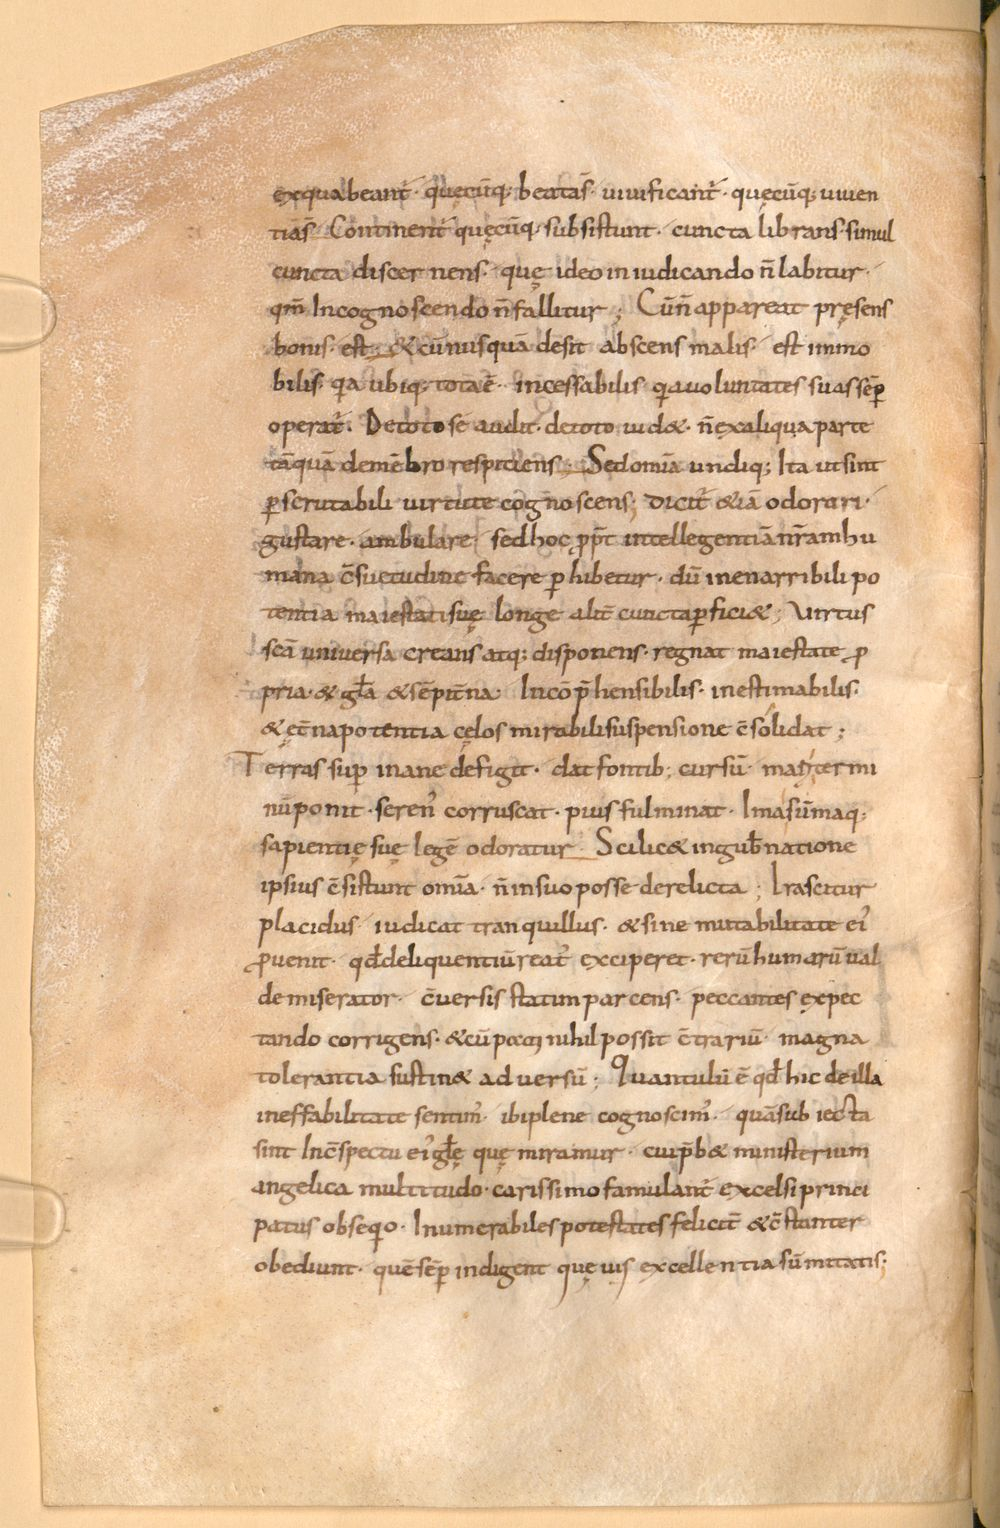 exquabeant᷑· quęcūq; beatas᷑· uiuificant᷑· quęcūq; uiuen
tias᷑· Continent᷑ quęcūq; subsistunt· cuncta librans· simul
cuncta discernens· quę ideo in iudicando n̄ labitur·
qm̄ Incognoscendo n̄ fallitur; Cūn̄ appareat pręsens
bonis· est; & cū nusquā desit abscens malis· est immo
bilis· qͥa ubiq; tota ē· incessabilis qͥa uoluntates suas sēp̄
operat᷑. De toto se audit· de toto uid&· n̄ ex aliqua parte
tāquā demēbro respiciens; Sed omīa undiq; Ita ut sint
ꝑscrutabili uirtute cognoscens; Dicit᷑ &iā odorari·
gustare· ambulare· sed hoc ꝓpt̄ intellegentiā nr̄am hu
mana c̄suetudine facere ꝑhibetur· dū inenarribili po
tentia maiestatis uę longe alit̄ cuncta ꝑfici&; Virtus
sc̄a universa creans atq; disponens· regnat maiestate ꝓ
pria· & gl̄a & sēpit̄na· Incōp̄hensibilis· inestimabilis·
& ęt̄na potentia cęlos mirabili suspensione c̄solidat;
Terras suꝑ inane defigit· dat fontib; cursū· mari termi
nū ponit· seren᷒ corruscat· pius fulminat· Ima sūmaq;
sapientię suę legē odoratur· Scilic& ingub̄natione
ipsius c̄sistunt omīa· n̄ in suo posse derelicta; Irascitur
placidus· iudicat tranquillus· & sine mutabilitate ei᷒
ꝓuenit· qd̄ deliquentiū reat᷒ exciperet· rerū humarū ual
de miserator· c̄uersis statim parcens· peccantes expec
tando corrigens· & cū pati nihil possit c̄trariū· magna
tolerantia sustin& aduersū; Quantulū ē qd̄ hic de illa
ineffabilitate sentim᷒· ibi plene cognoscim᷒· quā subiecta
sint Inc̄spectu ei᷒ gl̄ę quę miramur· cui p̄b& ministerium
angelica multitudo· carissimo famulant᷑ excelsi princi
patus obseqͥo· Inumerabiles potestates felicit̄ & c̄stanter
obediunt· quē sēꝑ indigent quęuis excellentia sūmitatis;